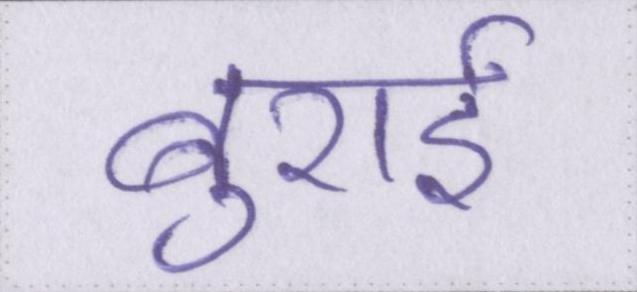 बुराई